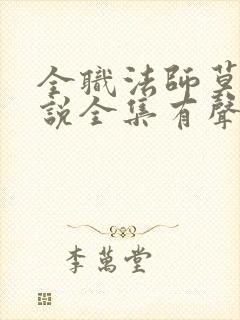 全職法師莫
說全集有聲
李萬堂